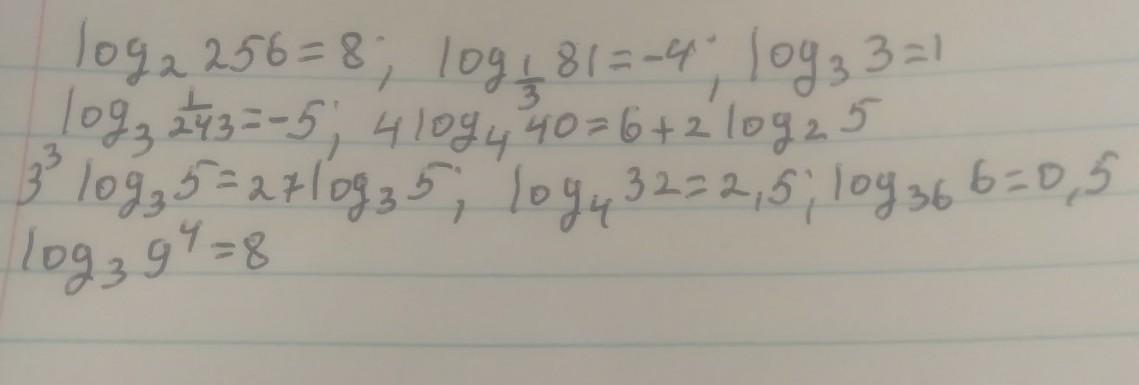 log₂ 256 = 8; log_{1/3} 81 = -4; log₃ 3 = 1
log₃ 1/243 = -5; 4 log₄ 40 = 6 + 2 log₂ 5
3³ log₃ 5 = 27 log₃ 5; log₄ 32 = 2,5; log₃₆ 6 = 0,5
log₃ 9⁴ = 8